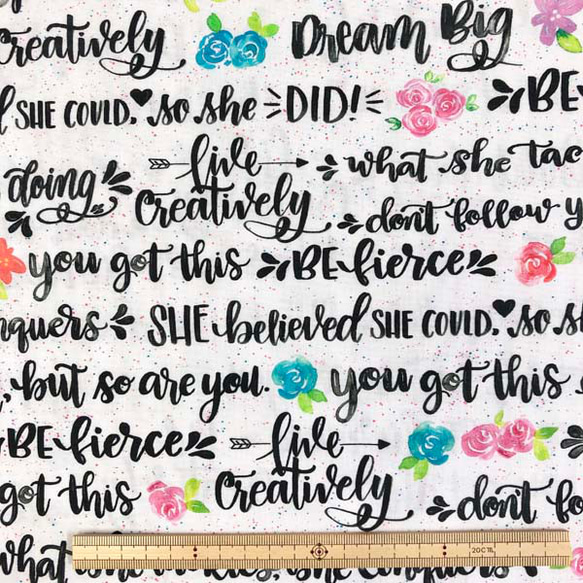 Creatively Dream Big
SHE COULD, so she DID! BE
doing live Creatively what she
don't follow
you got this BE fierce
SHE believed SHE COULD, so
but so are you. you got this
BE fierce live Creatively
got this don't
what she
20℃TL